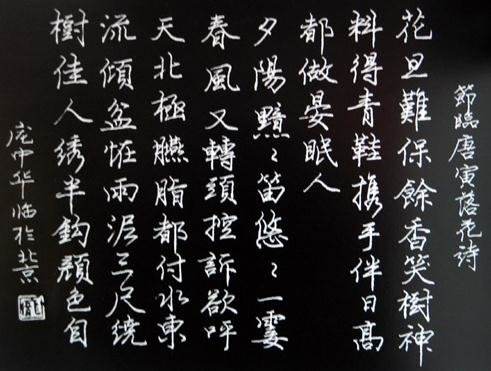 節臨唐寅落花詩
花旦難保餘香笑樹神
料得青鞋携手伴日高
都做晏眠人
夕陽黯〻笛悠〻一霎
春風又轉頭控訴欲呼
天北極臙脂都付水東
流傾盆恠雨泥三尺繞
樹佳人綉半鈎顏色自
庞中华临於北京